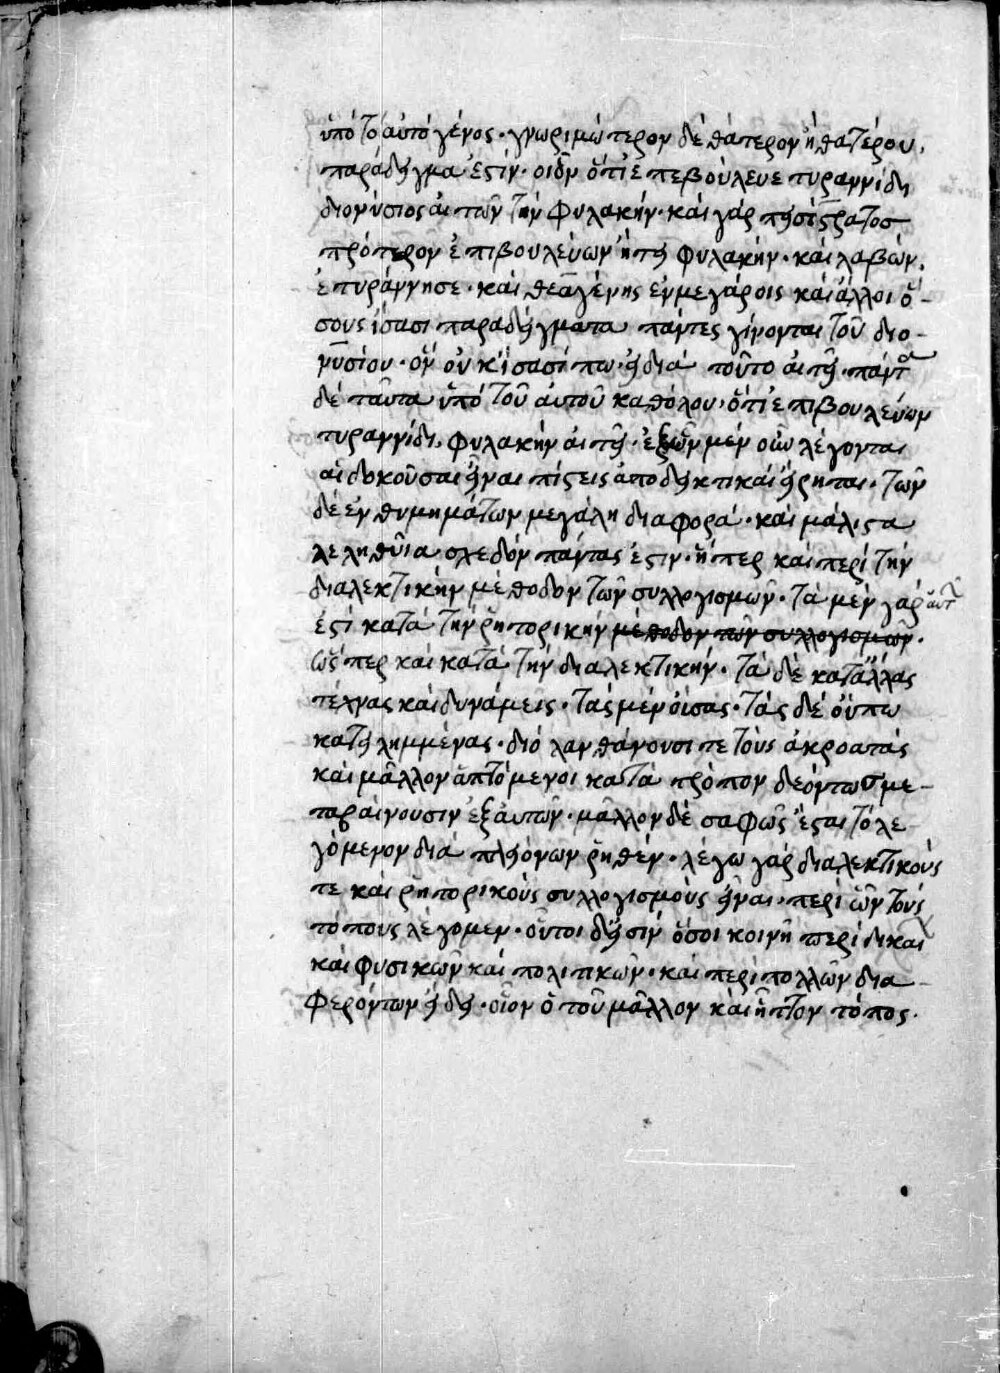 ὑπὸ τὸ αὐτὸ γένος· γνωριμώτερον δὲ θάτερον ἢ θατέρου,
παράδειγμα ἐστίν· οἷον ὅτι ἐπεβούλευε τυραννίδι
διονύσιος αἰτῶν τὴν φυλακήν· καὶ γὰρ πεισίστρατος
πρότερον ἐπιβουλεύων ἤτει φυλακήν· καὶ λαβών,
ἐτυράννησε· καὶ θεαγένης ἐν μεγάροις καὶ ἄλλοι ὅ-
σους ἴσασι παραδείγματα πάντες γίνονται τοῦ διο-
νυσίου· ὃν οὐκ ἴσασί πω· εἰ διὰ τοῦτο αἰτεῖ· πάντα
δὲ ταῦτα ὑπὸ τοῦ αὐτοῦ καθόλου· ὅτι ἐπιβουλεύων
τυραννίδι, φυλακὴν αἰτεῖ· ἐξ ὧν μὲν οὖν λέγονται
αἱ δοκοῦσαι εἶναι πίστεις ἀποδεικτικαὶ εἴρηται· τῶν
δὲ ἐνθυμημάτων μεγάλη διαφορά· καὶ μάλιστα
λεληθυῖα σχεδὸν πάντας ἐστιν· ἥπερ καὶ περὶ τὴν
διαλεκτικὴν μέθοδον τῶν συλλογισμῶν· τὰ μὲν γὰρ αὐτῶν
ἐστὶ κατὰ τὴν ῥητορικὴν μέθοδον τῶν συλλογισμῶν·
ὥσπερ καὶ κατὰ τὴν διαλεκτικήν· τὰ δὲ κατ' ἄλλας
τέχνας καὶ δυνάμεις· τὰς μὲν οὔσας· τὰς δὲ οὔπω
κατειλημμένας· διὸ λανθάνουσι τε τοὺς ἀκροατὰς
καὶ μᾶλλον ἁπτόμενοι κατὰ τρόπον δεόντως με-
ταβαίνουσιν ἐξ αὐτῶν· μᾶλλον δὲ σαφῶς ἔσται τὸ λε-
γόμενον διὰ πλειόνων ῥηθέν· λέγω γὰρ διαλεκτικούς
τε καὶ ῥητορικοὺς συλλογισμοὺς εἶναι, περὶ ὧν τοὺς
τόπους λέγομεν· οὗτοι δ' εἰσὶν ὅσοι κοινῇ περὶ δικαίων
καὶ φυσικῶν καὶ πολιτικῶν· καὶ περὶ πολλῶν δια-
φερόντων εἴδει· οἷον ὁ τοῦ μᾶλλον καὶ ἧττον τόπος·